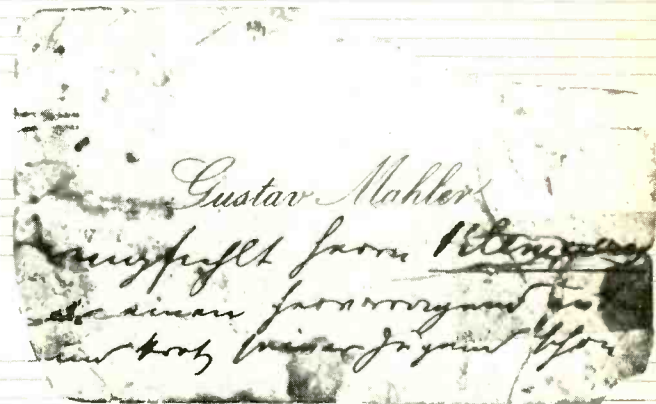 Gustav Mahler
empfiehlt Herrn Klemperer
als einen hervorragend
und trotz seiner Jugend schon